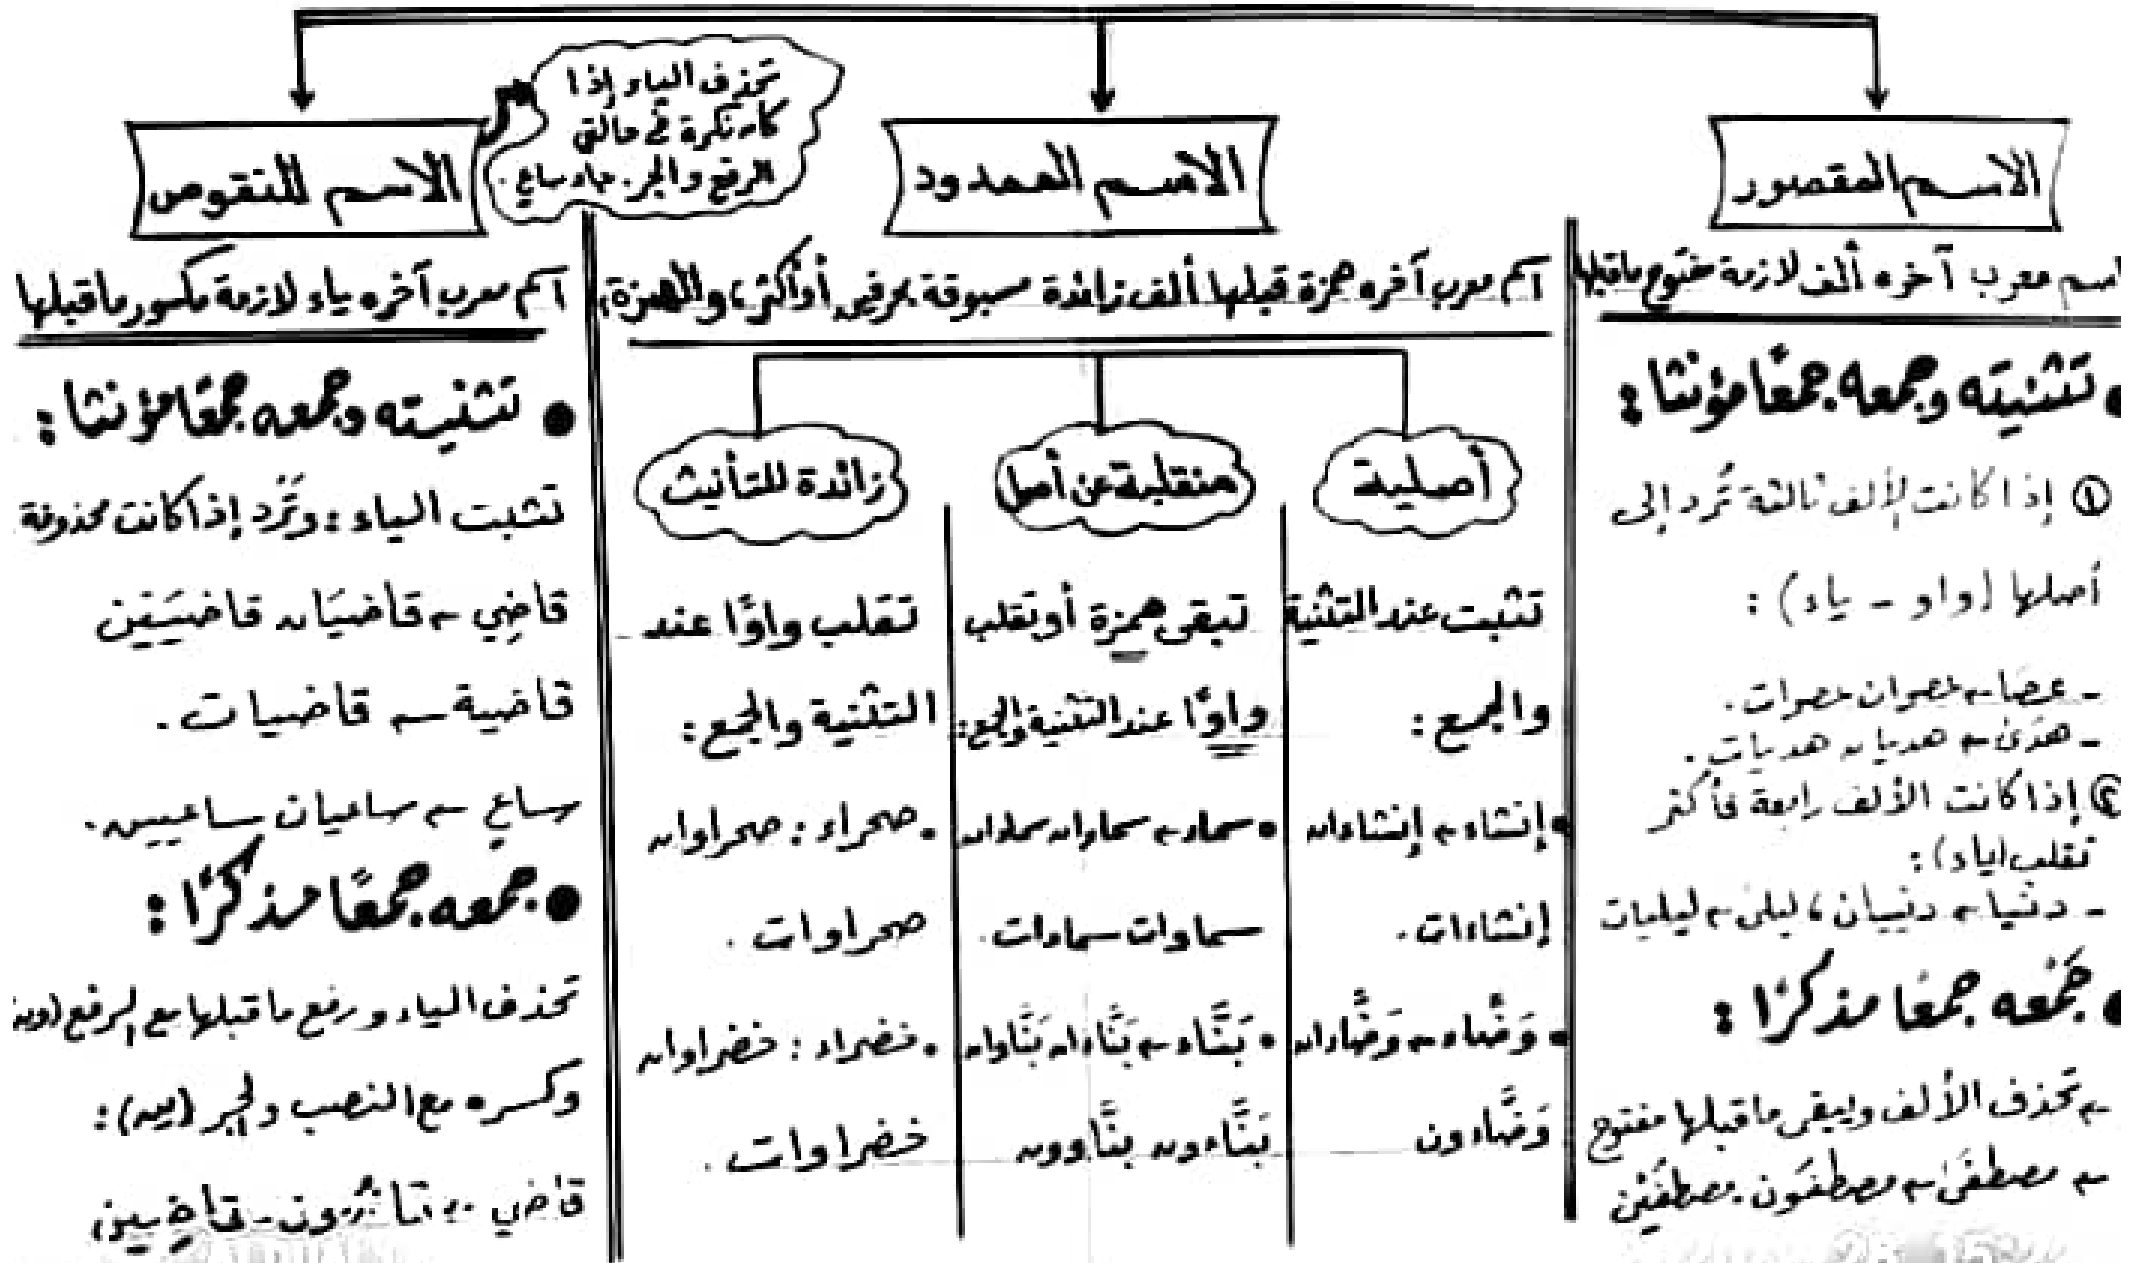 الاسم المقصور
اسم معرب آخره ألف لازمة مفتوح ماقبلها
• تثنيته وجمعه جمعًا مؤنثا :
① إذا كانت الألف ثالثة تُرد إلى
أصلها (واو - ياء) :
- عصا ← عصوان عصوات.
- هدى ← هديان هديات.
② إذا كانت الألف رابعة فأكثر
تقلب (ياء) :
- دنيا ← دنييان، ليلى ← ليليات
• جَمْعه جمعًا مذكرًا :
← تحذف الألف ويبقى ماقبلها مفتوح
← مصطفى ← مصطفَون. مصطفَيْن
الاسم الممدود
اسم معرب آخره همزة قبلها ألف زائدة مسبوقة بحرفين أو أكثر، والهمزة:
أصلية
تثبت عند التثنية
والجمع :
• إنشاء ← إنشاءان
إنشاءات.
• وَضَّاء ← وَضَّاءان
وَضَّاءون
منقلبة عن أصل
تبقى همزة أو تقلب
واوًا عند التثنية والجمع :
• سماء ← سماوان سماءان
سماوات سماءات.
• بَنَّاء ← بَنَّاءان بَنَّاوان
بَنَّاءون بنَّاوون
زائدة للتأنيث
تقلب واوًا عند
التثنية والجمع :
. صحراء : صحراوان
صحراوات .
. خضراء : خضراوان
خضراوات .
الاسم المنقوص
تحذف الياء إذا
كان نكرة في حالتي
الرفع والجر. جاء ساعٍ.
اسم معرب آخره ياء لازمة مكسور ماقبلها
• تثنيته وجمعه جمعًا مؤنثا :
تثبت الياء : وتُرَد إذا كانت محذوفة
قاضِي ← قاضيَان قاضيَين
قاضية ← قاضيات.
ساعٍ ← ساعيان ساعيين.
• جمعه جمعًا مذكرًا :
تحذف الياء ورفع ماقبلها مع الرفع (ون
وكسره مع النصب والجر (ين) :
قاضي ← قاضُون - قاضِين